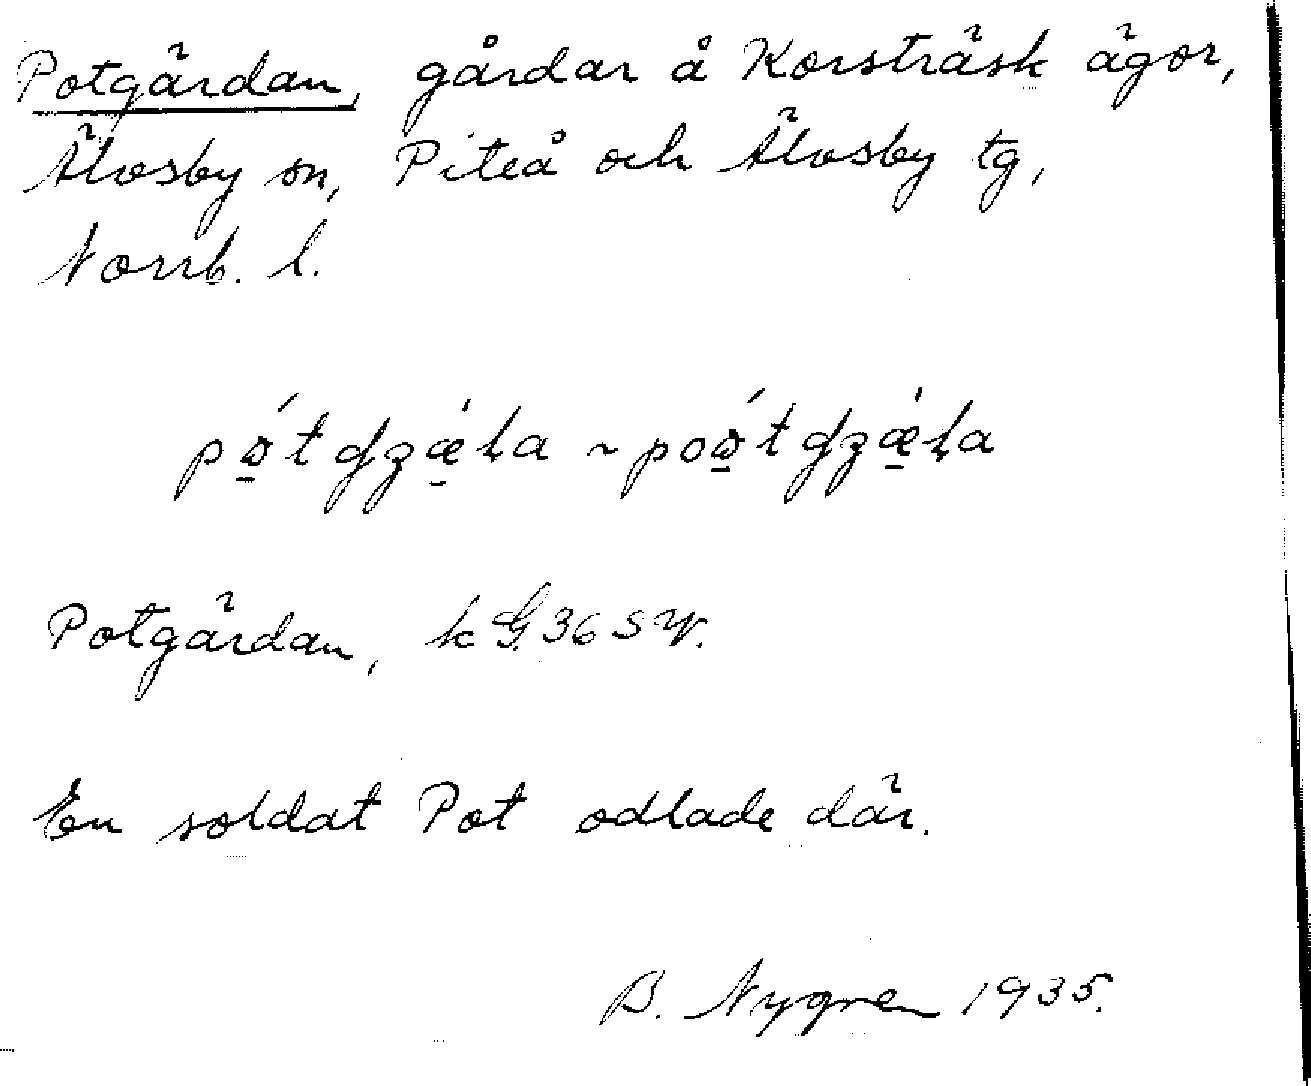 Potgärdan, gårdar å Korsträsk ägor,
Älvsby sn, Piteå och Älvsby tg,
Norrb. l.
Potgärdan, k G. 36 SV.
En soldat Pot odlade där.
B. Nygren 1935.